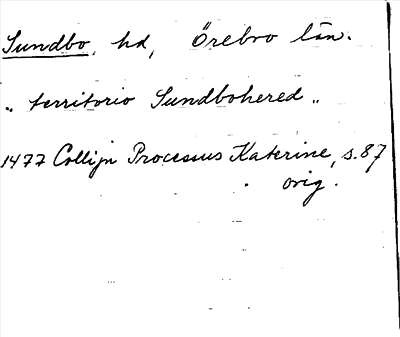 Sundbo, hd, Örebro län.
„ territorio Sundbohered „
1477 Collijn Processus Katerine, s. 87
orig.